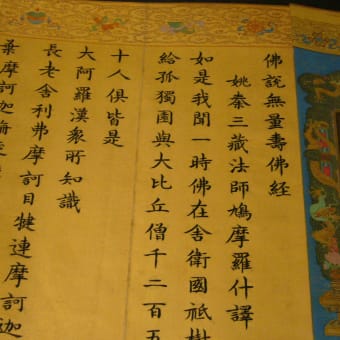 佛說無量壽佛經
姚秦三藏法師鳩摩羅什譯
如是我聞一時佛在舍衛國祇樹
給孤獨園與大比丘僧千二百五
十人俱皆是
大阿羅漢衆所知識
長老舍利弗摩訶目犍連摩訶迦
葉摩訶迦